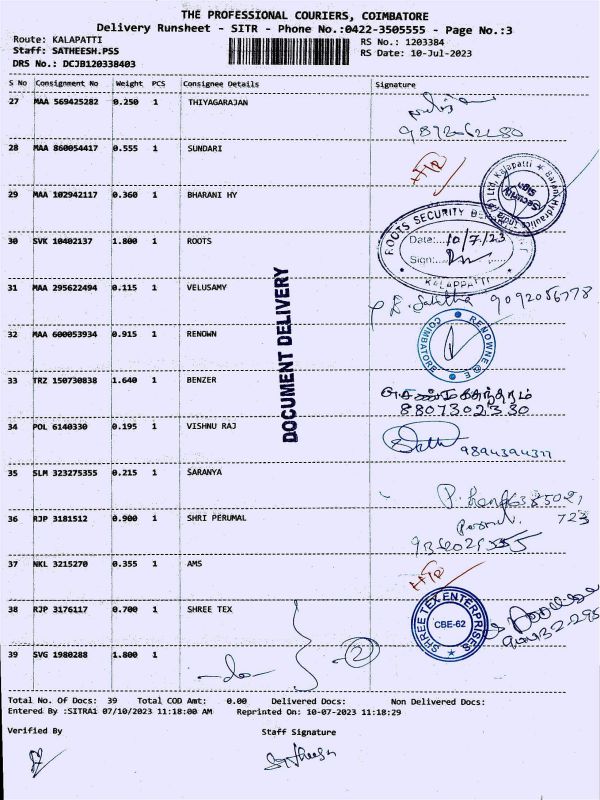 THE PROFESSIONAL COURIERS, COIMBATORE
Delivery Runsheet - SITR - Phone No.:0422-3505555 - Page No.:3
Route: KALAPATTI RS No.: 1203384
Staff: SATHEESH.PSS RS Date: 10-Jul-2023
DRS No.: DCJB120338403
S No Consignment No Weight PCS Consignee Details Signature
27 MAA 569425282 0.250 1 THIYAGARAJAN
28 MAA 860054417 0.555 1 SUNDARI
29 MAA 102942117 0.360 1 BHARANI HY
Security
Sign
30 SVK 10402137 1.800 1 ROOTS
ROOTS SECURITY
Date: 10/7/23
Sign:
KALAPPATTI
31 MAA 295622494 0.115 1 VELUSAMY
9092056778
32 MAA 600053934 0.915 1 RENOWN
RENOWNE
COIMBATORE
DOCUMENT DELIVERY
33 TRZ 150730838 1.640 1 BENZER
8807302330
34 POL 6140330 0.195 1 VISHNU RAJ
35 SLM 323275355 0.215 1 SARANYA
36 RJP 3181512 0.900 1 SHRI PERUMAL
37 NKL 3215270 0.355 1 AMS
38 RJP 3176117 0.700 1 SHREE TEX
SHREE TEX ENTERPRISES
CBE-62
39 SVG 1980288 1.800 1
-do-
2
Total No. Of Docs: 39 Total COD Amt: 0.00 Delivered Docs: Non Delivered Docs:
Entered By :SITRA1 07/10/2023 11:18:00 AM Reprinted On: 10-07-2023 11:18:29
Verified By Staff Signature